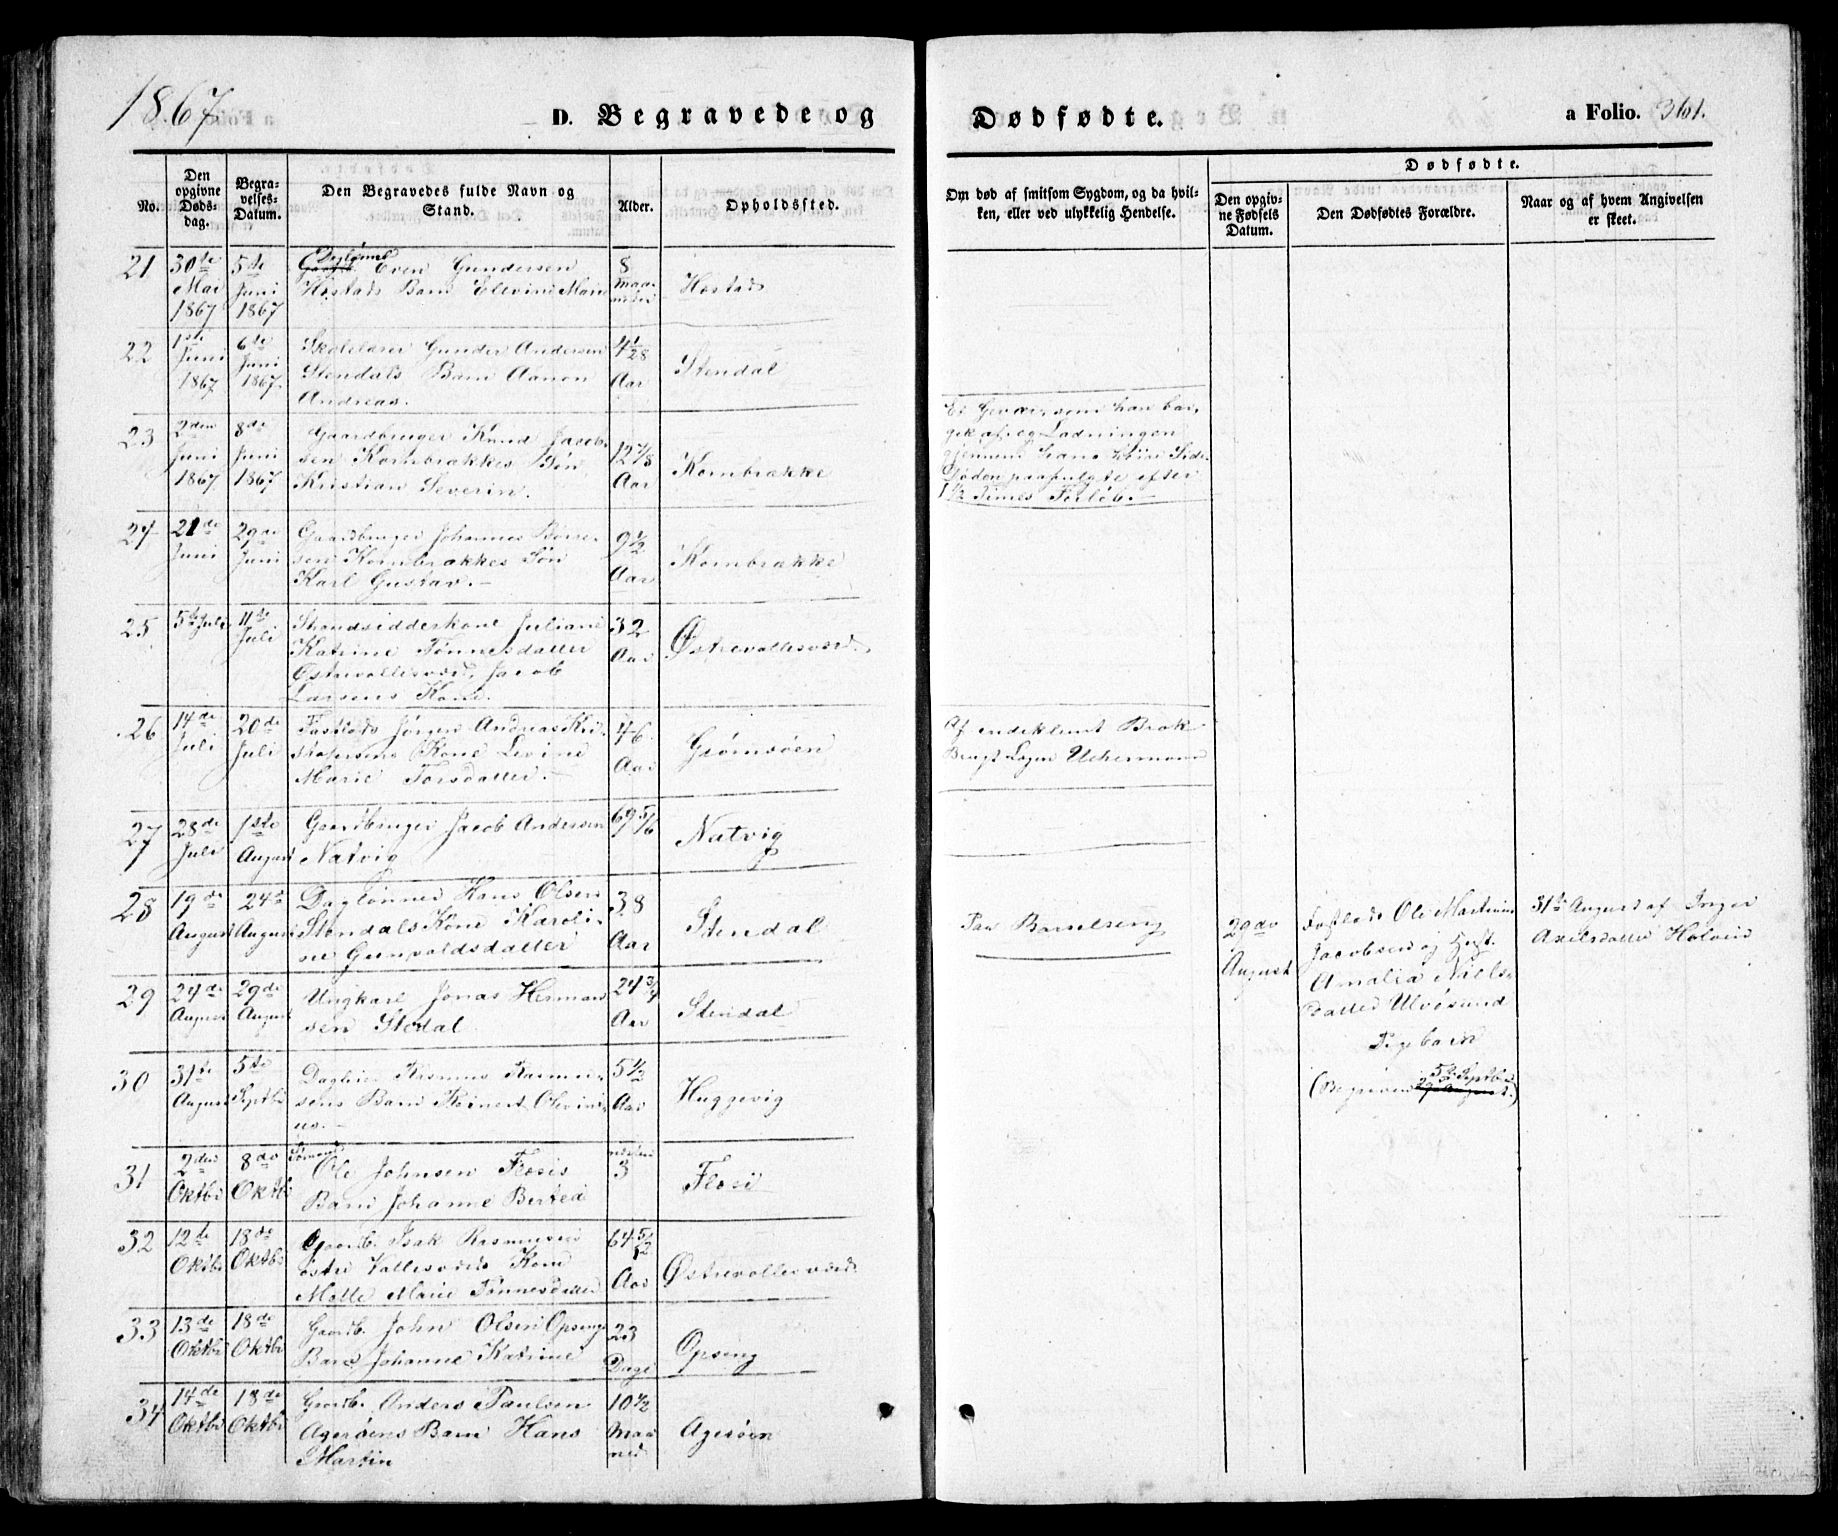 1867
D. Begravede og
Dødfødte.
a Folio. 361.
No.
Den opgivne Døds-dag.
Begra-velses-Datum.
Den Begravedes fulde Navn og Stand.
Alder.
Opholdssted.
Om død af smitsom Sygdom, og da hvil-
ken, eller ved ulykkelig Hendelse.
Dødfødte.
Den opgiv-ne Fødsels Datum.
Den Dødfødtes Forældre.
Naar og af hvem Angivelsen er skeet.
21
30te Mai 1867
5te Juni 1867
Daglønner
Even Gundersen
Hostads Barn Elevine Marie
8 Maaneder
Hostad
22
1ste Juni 1867
6te Juni 1867
Skolelærer Gunder Andersen
Stendals Barn Aanon
Andreas.
4 1/28 Aar
Stendal
23
2den Juni 1867
8de Juni 1867
Gaardbruger Knud Jacob-
sen Kornbrækkes Søn
Kristian Severin.
12 7/8 Aar
Kornbrække
Et Gevær, som han bar,
gik af, og Ladningen
gjennem hans høire Side.
Døden paafulgte efter
1 1/2 Times Forløb.
24
21de Juni
29de Juni
Gaardbruger Johannes
Kornbrækkes Søn
Karl Gustav.
9 1/2 Aar
Kornbrække
25
5te Juli
11te Juli
Strandsidderkone Juliane
Katrine Tønnesdatter
Østrevallesværd, Jacob
Larsens Kone.
32 Aar
Østrevallesværd
26
14de Juli
20de Juli
Jørgen Andreas Kri-
stofersens Kone Levine
Marie Torsdatter.
46 Aar
Grømsøen
Af indeklemt Brok
Brugt Læge Uchermann
27
28de Juli
1ste August
Gaardbruger Jacob Andersen
Natvig
69 5/6
Natvig
28
19de August
24de August
Daglønner Hans Olsen
Stendals Kone Karoli-
ne Gunvaldsdatter
38 Aar
Stendal
Paa Barselseng
29de August
Ole Martinus
Jacobsen og Hust.
Amalia Niels-
datter Ulvøsund
Pigebarn
(Begraven 5te Septbr.)
31te August af Inger
Axelsdatter
29
24de August
29de August
Ungkarl Jonas Herman-
sen Stedal
24 3/4 Aar
Stendal
30
31te August
5te Septbr
Rasmus Rasmus-
sens Barn
5 1/2 Aar
Huggevig
31
2den Oktbr
8de Oktbr
Sømand
Ole Johnsen Flosis
Barn Johanne Bertea
3
Flosi
32
12te Oktbr
18de Oktbr
Gaardb. Isak Rasmusen
Østre Vallesværds Kone
Malle Marie Tønnesdatter
64 5/12 Aar
Østrevallesværd
33
13de Oktbr
18de Oktbr
Gaardb. John Olsen Opsengs
Barn Johanne Katrine
23 Dage
Opseng
34
14de Oktbr
18de Oktbr
Gaardb. Anders Paulsen
Agerøens Barn Hans
Martin
10 1/2 Maaned
Agerøen